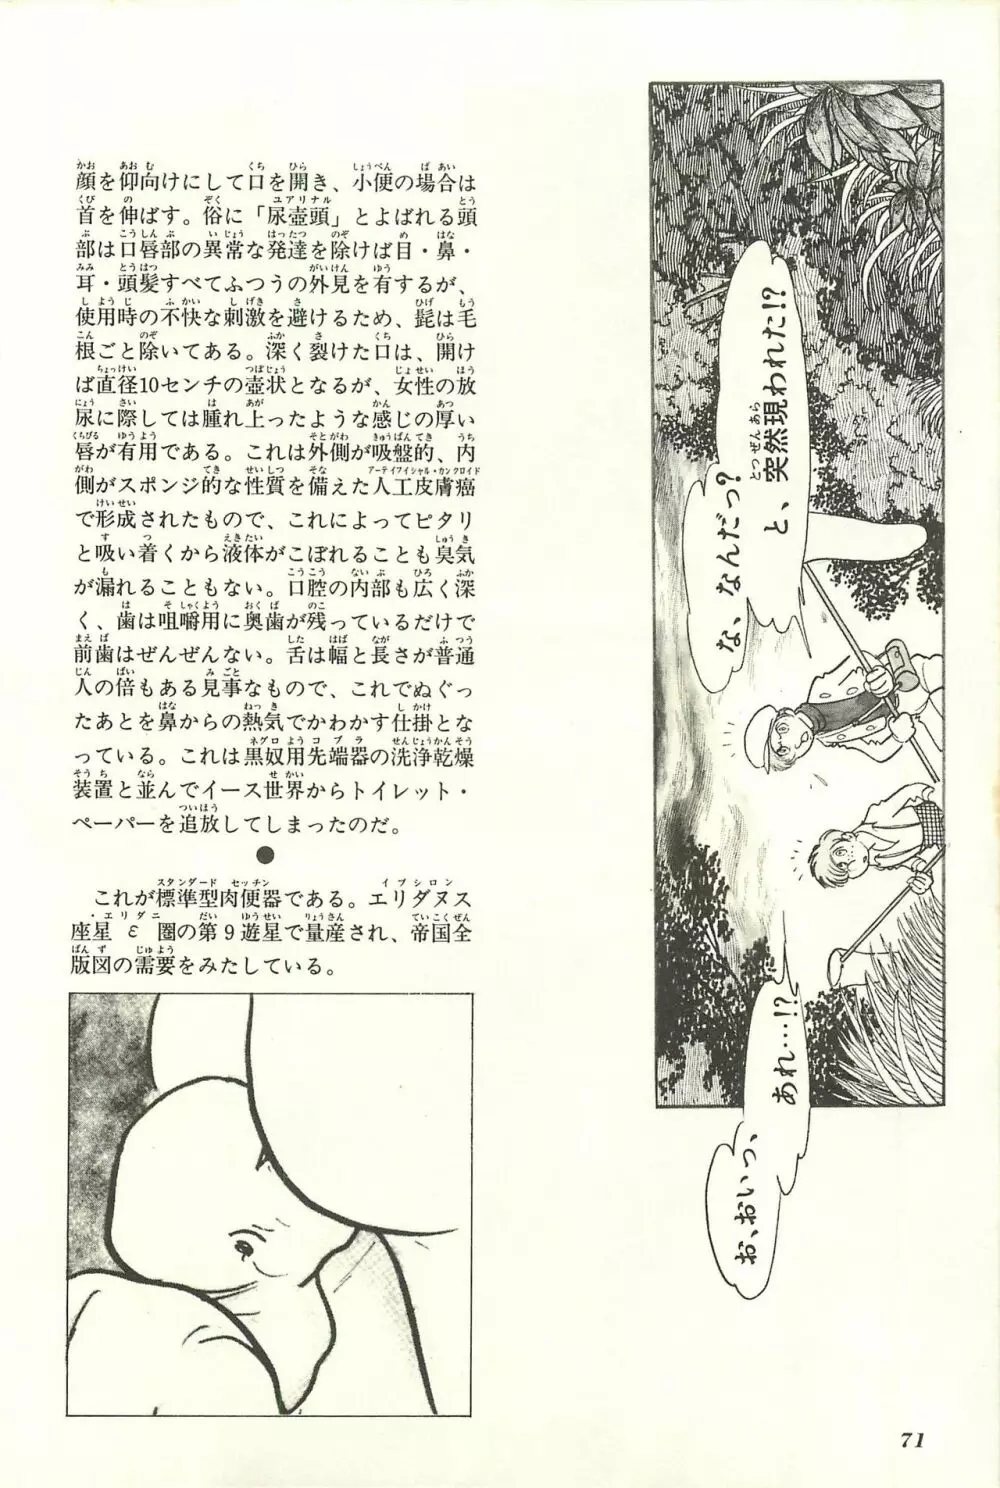 顔を仰向けにして口を開き、小便の場合は
首を伸ばす。俗に「尿壺頭」とよばれる頭
部は口唇部の異常な発達を除けば目・鼻・
耳・頭髪すべてふつうの外見を有するが、
使用時の不快な刺激を避けるため、髭は毛
根ごと除いてある。深く裂けた口は、開け
ば直径10センチの壺状となるが、女性の放
尿に際しては腫れ上ったような感じの厚い
唇が有用である。これは外側が吸盤的、内
側がスポンジ的な性質を備えた人工皮膚癌
で形成されたもので、これによってピタリ
と吸い着くから液体がこぼれることも臭気
が漏れることもない。口腔の内部も広く深
く、歯は咀嚼用に奥歯が残っているだけで
前歯はぜんぜんない。舌は幅と長さが普通
人の倍もある見事なもので、これでぬぐっ
たあとを鼻からの熱気でかわかす仕掛とな
っている。これは黒奴用先端器の洗浄乾燥
装置と並んでイース世界からトイレット・
ペーパーを追放してしまったのだ。
●
これが標準型肉便器である。エリダヌス
座星 ε 圏の第9遊星で量産され、帝国全
版図の需要をみたしている。
な、なんだっ?
と、突然現われた!?
お、おいっ、
あれ…!?
71